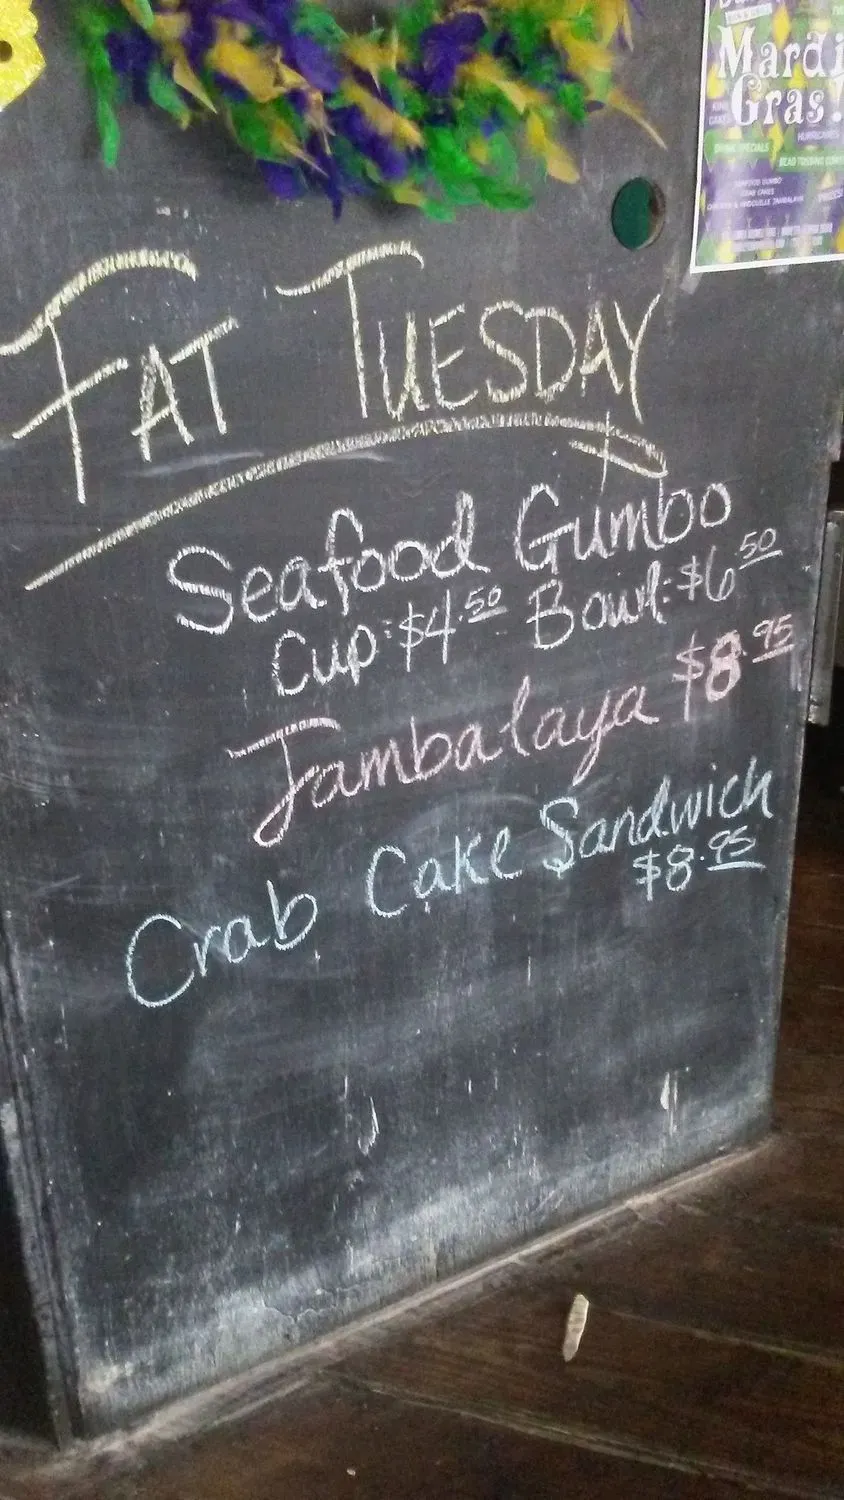 Mardi
Gras!
KING
CAKE
HURRICANES
DRINK SPECIALS
SEAFOOD GUMBO
CRAB CAKES
CHICKEN & ANDOUILLE JAMBALAYA
FAT TUESDAY
Seafood Gumbo
Cup: $4.50 Bowl: $6.50
Jambalaya $8.95
Crab Cake Sandwich
$8.95